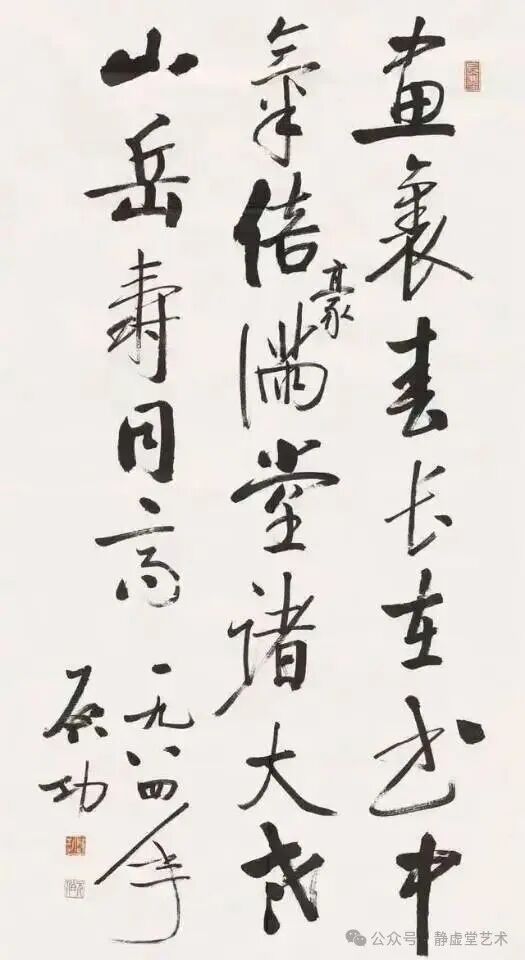 畫裏春长在书中
氣倍豪滿堂諸大老
山岳壽同高 一九八四年
启功
公众号 · 静虚堂艺术